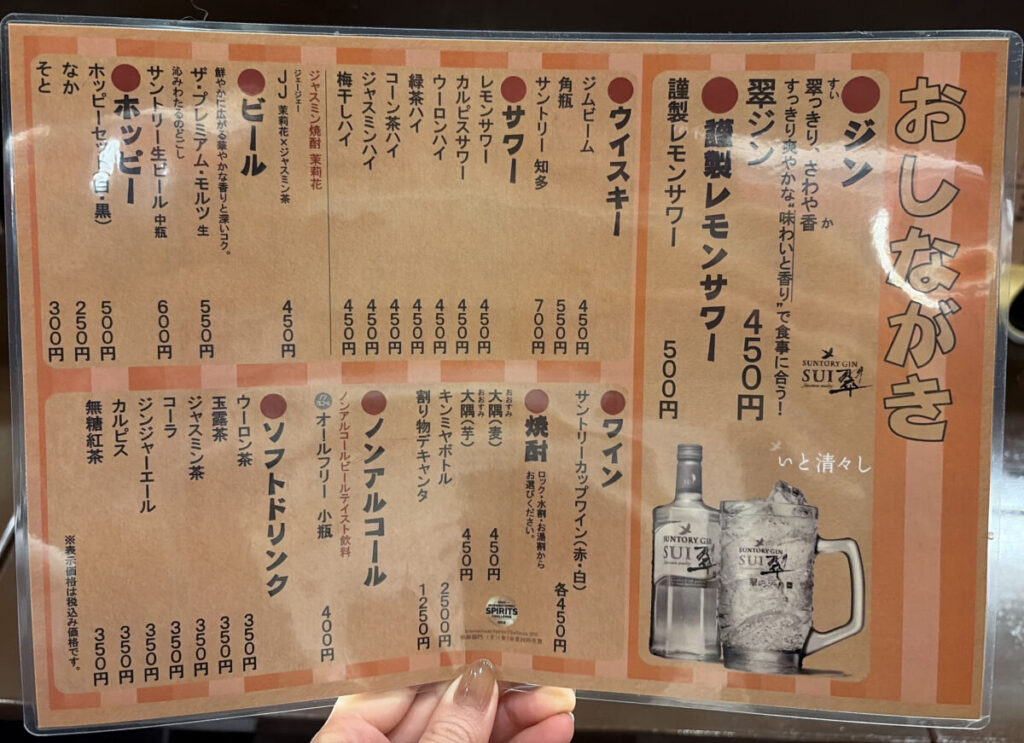 おしながき
ジン
翠っきり、さわや香
すい
か
すっきり爽やかな“味わいと香り”で食事に合う！
翠ジン 450円
SUNTORY GIN
SUI 翠
謹製レモンサワー
謹製レモンサワー 500円
いと清々し
SUNTORY GIN
SUI 翠
SUNTORY GIN
SUI 翠
ウイスキー
ジムビーム 450円
角瓶 550円
サントリー 知多 700円
サワー
レモンサワー 450円
カルピスサワー 450円
ウーロンハイ 450円
緑茶ハイ 450円
コーン茶ハイ 450円
ジャスミンハイ 450円
梅干しハイ 450円
ジャスミン焼酎 茉莉花
ジェージェー
JJ 茉莉花×ジャスミン茶 450円
ビール
鮮やかに広がる華やかな香りと深いコク。
ザ・プレミアム・モルツ 生 550円
沁みわたるのどごし
サントリー生ビール 中瓶 600円
ホッピー
ホッピーセット（白・黒） 500円
なか 250円
そと 300円
ワイン
サントリーカップワイン（赤・白） 各450円
焼酎
ロック・水割・お湯割から
お選びください。
おおすみ
大隅（麦） 450円
おおすみ
大隅（芋） 450円
キンミヤボトル 2500円
割り物デキャンタ 1250円
SPIRITS
ノンアルコール
ノンアルコールビールテイスト飲料
オールフリー 小瓶 400円
ソフトドリンク
ウーロン茶 350円
玉露茶 350円
ジャスミン茶 350円
コーラ 350円
ジンジャーエール 350円
カルピス 350円
無糖紅茶 350円
※表示価格は税込み価格です。